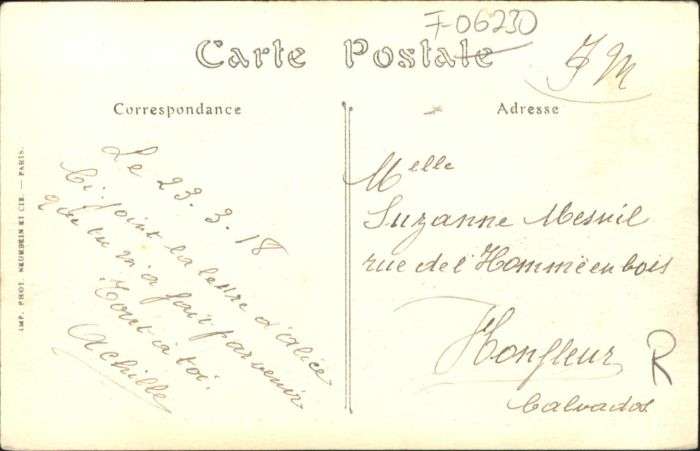 7-06230
Carte Postale
F M
Correspondance
Adresse
Le 23.3.18
Ci joint la lettre d'alice
que tu m'a fait parvenir
Tout à toi.
Achille
Melle
Suzanne Mesnil
rue de l'Homme en bois
Honfleur
Calvados
R
IMP. PHOT. NEURDEIN ET CIE. — PARIS.